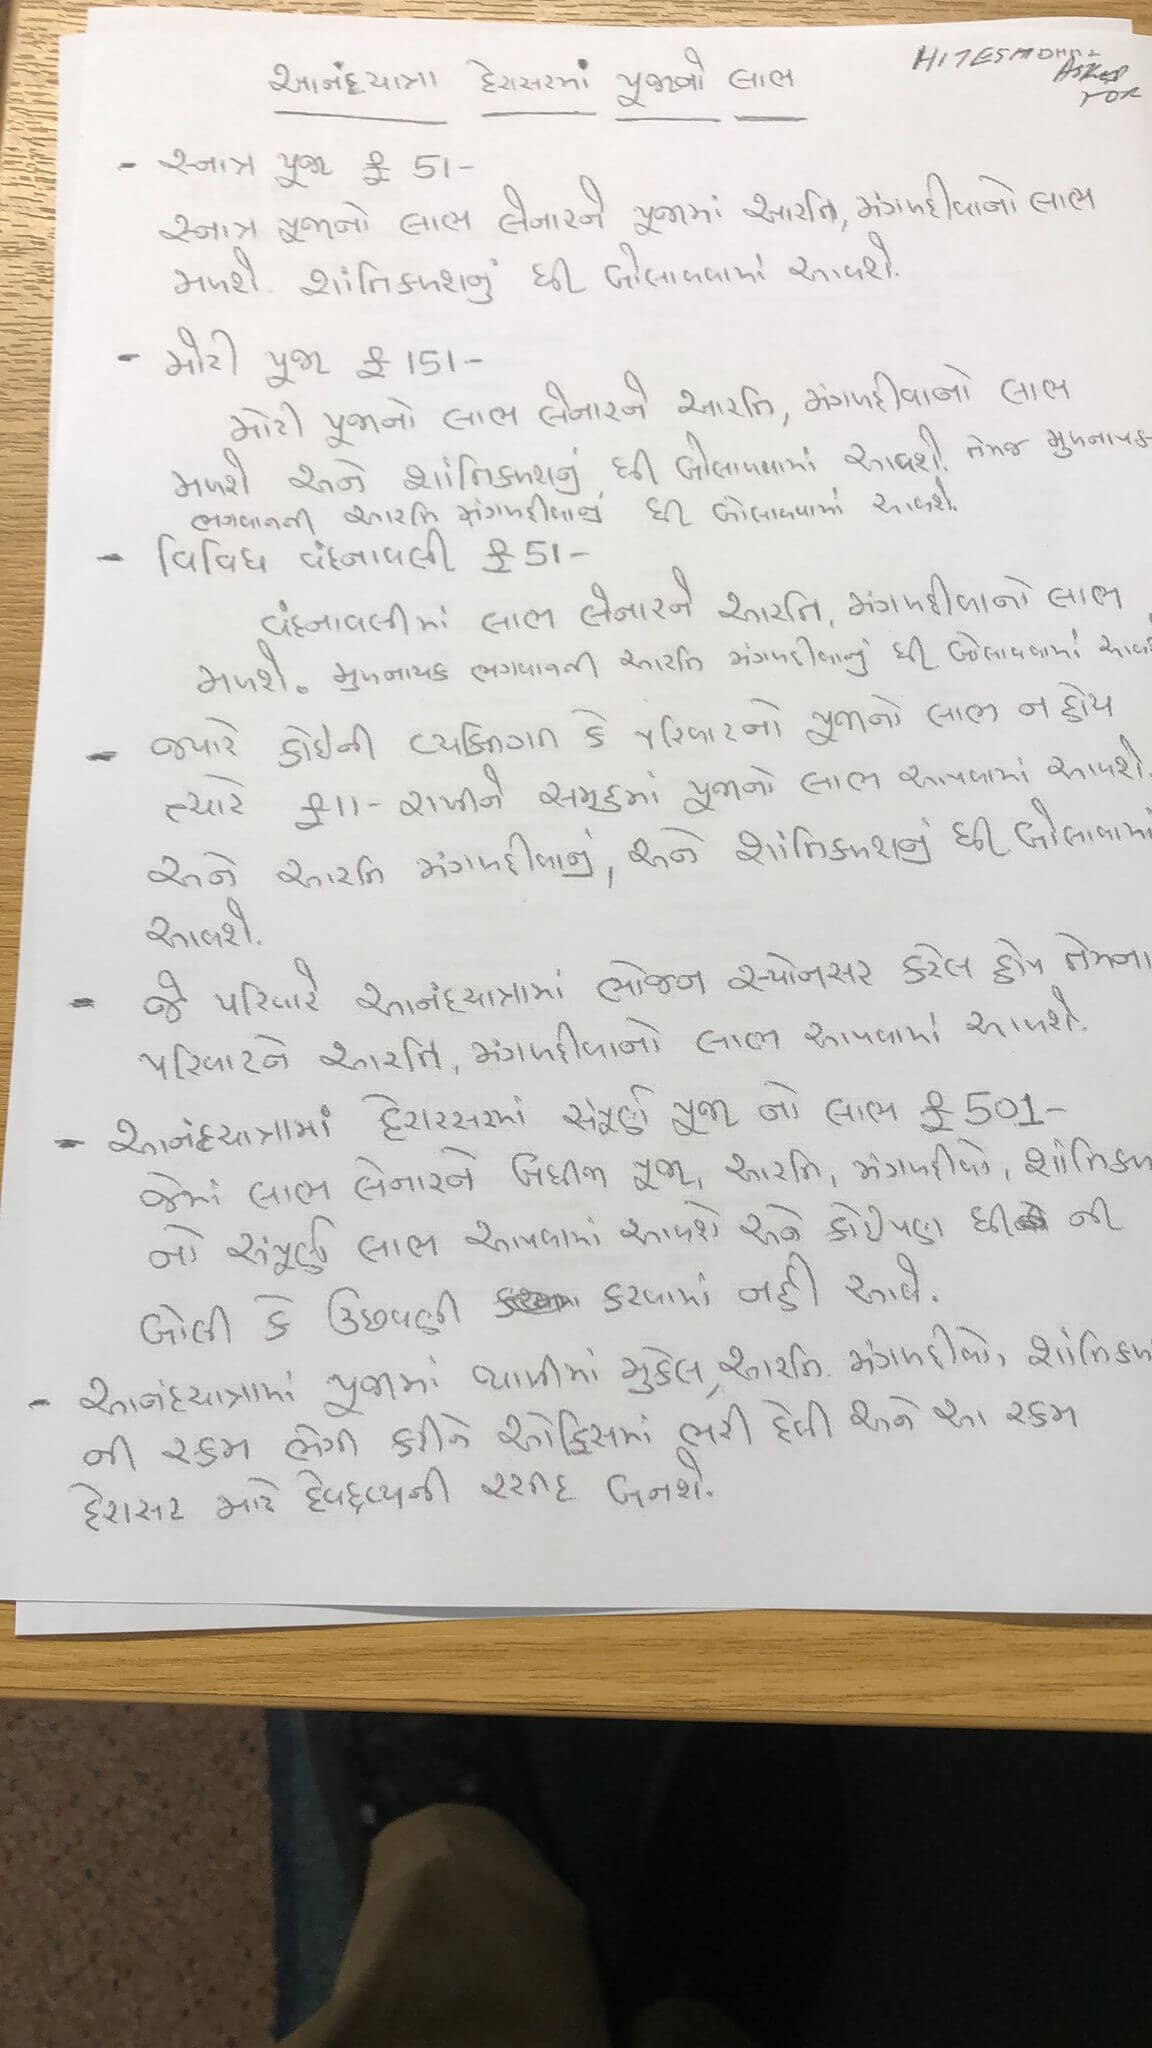 આનંદયાત્રા દેરાસરમાં પૂજાનો લાભ
HITESH
ASKED
FOR
- સ્નાત્ર પૂજા £ 51-
સ્નાત્ર પૂજાનો લાભ લેનારને પૂજામાં આરતિ, મંગળદીવાનો લાભ
મળશે. શાંતિકળશનું ઘી બોલાવવામાં આવશે.
- મોટી પૂજા £ 151-
મોટી પૂજાનો લાભ લેનારને આરતિ, મંગળદીવાનો લાભ
મળશે અને શાંતિકળશનું ઘી બોલાવવામાં આવશે. તેમજ મુળનાયક
ભગવાનની આરતિ મંગળદીવાનું ઘી બોલાવવામાં આવશે.
- વિવિધ વંદનાવલી £ 51-
વંદનાવલીમાં લાભ લેનારને આરતિ, મંગળદીવાનો લાભ
મળશે. મુળનાયક ભગવાનની આરતિ મંગળદીવાનું ઘી બોલાવવામાં
- જ્યારે કોઈની વ્યક્તિગત કે પરિવારનો પૂજાનો લાભ ન હોય
ત્યારે £11- રાખીને સમૂહમાં પૂજાનો લાભ આપવામાં આવશે.
અને આરતિ મંગળદીવાનું, અને શાંતિકળશનું ઘી બોલાવામાં
આવશે.
- જે પરિવારે આનંદયાત્રામાં ભોજન સ્પોનસર કરેલ હોય તેમના
પરિવારને આરતિ, મંગળદીવાનો લાભ આપવામાં આવશે.
- આનંદયાત્રામાં દેરારસરમાં સંપૂર્ણ પૂજા નો લાભ £ 501-
જેમાં લાભ લેનારને બધીજ પૂજા, આરતિ, મંગળદીવો, શાંતિકળ
નો સંપૂર્ણ લાભ આપવામાં આવશે અને કોઈપણ ઘી ની
બોલી કે ઉછવણી કરવામાં નહીં આવે.
- આનંદયાત્રામાં પૂજામાં થાળીમાં મુકેલ, આરતિ. મંગળદીવો, શાંતિકળ
ની રકમ ભેગી કરીને ઓફિસમાં ભરી દેવી અને આ રકમ
દેરાસર માટે દેવદ્રવ્યની રકમ બનશે.